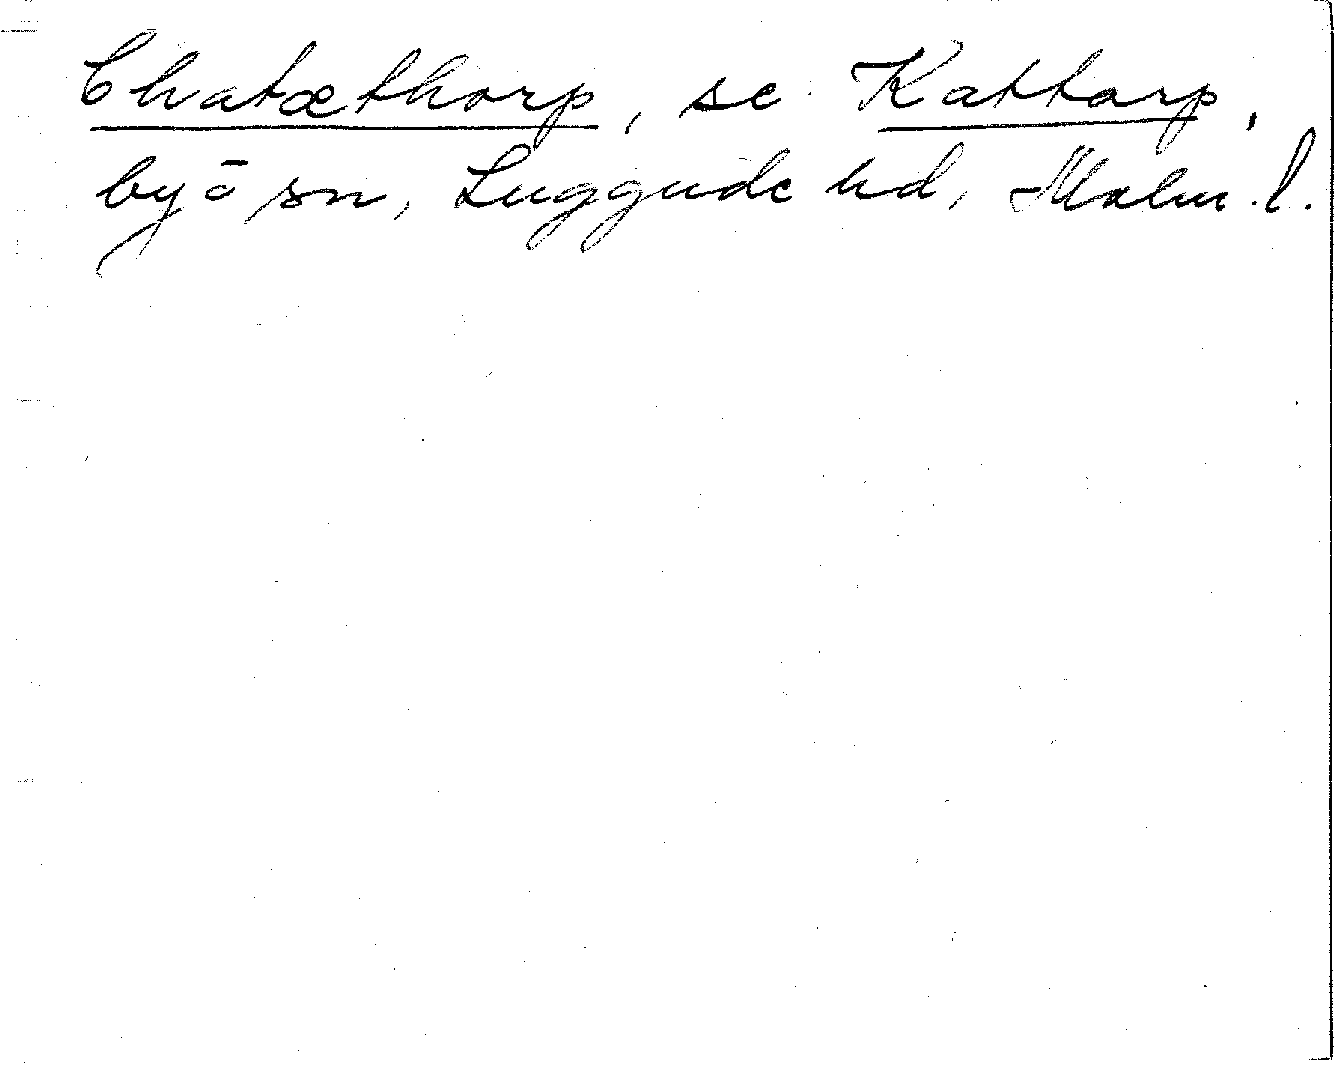 Chatæthorp, se Kattarp,
by ō sn, Luggude hd, Malm. l.